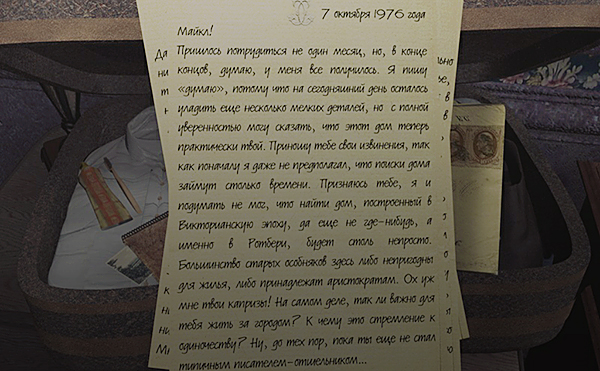 7 октября 1976 года
Майкл!
Пришлось потрудиться не один месяц, но, в конце
концов, думаю, у меня все получилось. Я пишу
«думаю», потому что на сегодняшний день осталось
уладить еще несколько мелких деталей, но с полной
уверенностью могу сказать, что этот дом теперь
практически твой. Приношу тебе свои извинения, так
как поначалу я даже не предполагал, что поиски дома
займут столько времени. Признаюсь тебе, я и
подумать не мог, что найти дом, построенный в
Викторианскую эпоху, да еще не где-нибудь, а
именно в Ротбери, будет столь непросто.
Большинство старых особняков здесь либо непригодны
для жилья, либо принадлежат аристократам. Ох уж
мне твои капризы! На самом деле, так ли важно для
тебя жить за городом? К чему это стремление к
одиночеству? Ну, до тех пор, пока ты еще не стал
типичным писателем-отшельником...